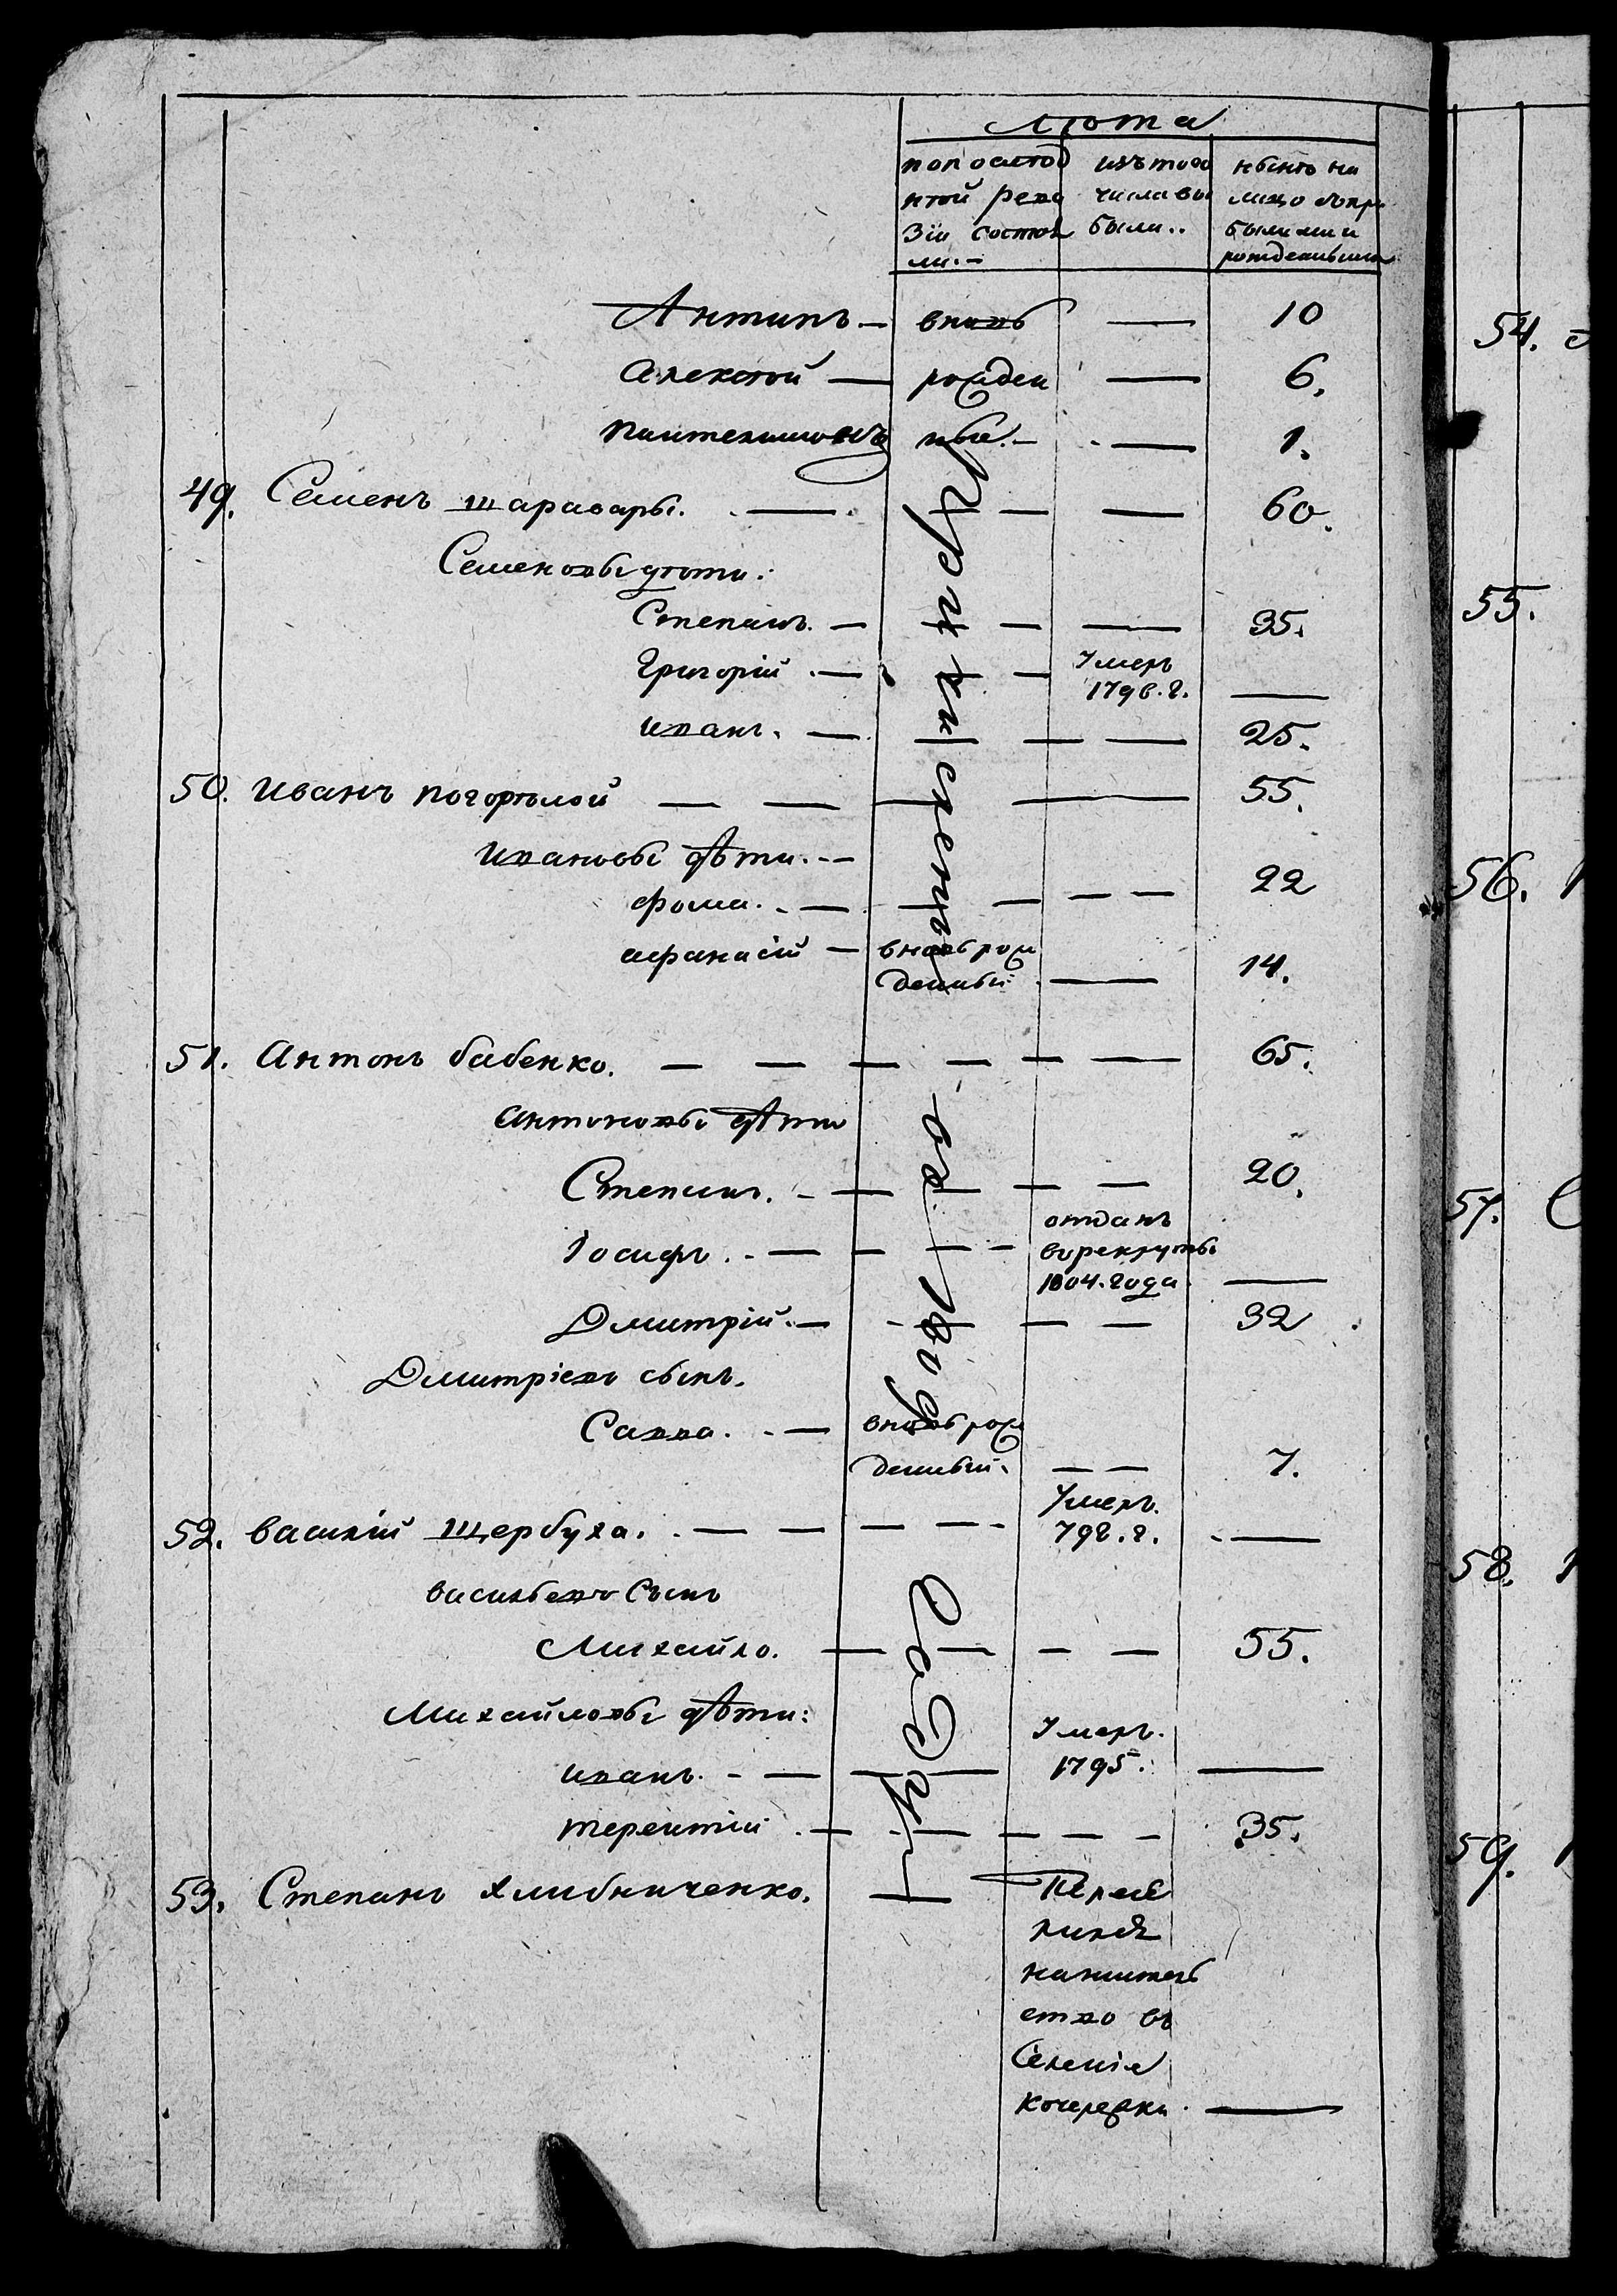 лѣта
по послѣд
ней реви
зіи состоя
ли.-
изъ того
числа вы
были..
нынѣ на
лицо съ при
былыми и
рожденными
Антипъ — вновь — 10
Алексѣй — рожден — 6.
Пантелимонъ ные. — 1.
49. Семенъ шаравары. — — — 60.
Семеновы дѣти:
Степанъ. — — — 35.
Григорій. — — Умеръ
1796. г. —
Иванъ. — — — 25.
50. Иванъ погорѣлой — — — 55.
Ивановы дѣти. —
Фома. — — — 22
Афанасій — вновь рож
денный — 14.
51. Антонъ бабенко. — — — 65.
Антоновы дѣти
Степанъ. — — — 20.
Іосифъ. — — отданъ
в рекруты
1804. года —
Дмитрій. — — — 32
Дмитріевъ сынъ.
Савва. — вновь рож
денный. — 7.
52. Василій Щербуха. — — Умеръ.
792. г. —
Васильевъ Сынъ
Михайло. — — — 55.
Михайловы дѣти:
Иванъ. — — Умеръ.
1795. —
Терентій — — — 35.
53. Степанъ хлибниченко. — Пересе
лился
на житель
ство въ
Селеніе
Кочережки —
54.
55.
56.
57.
58.
59.